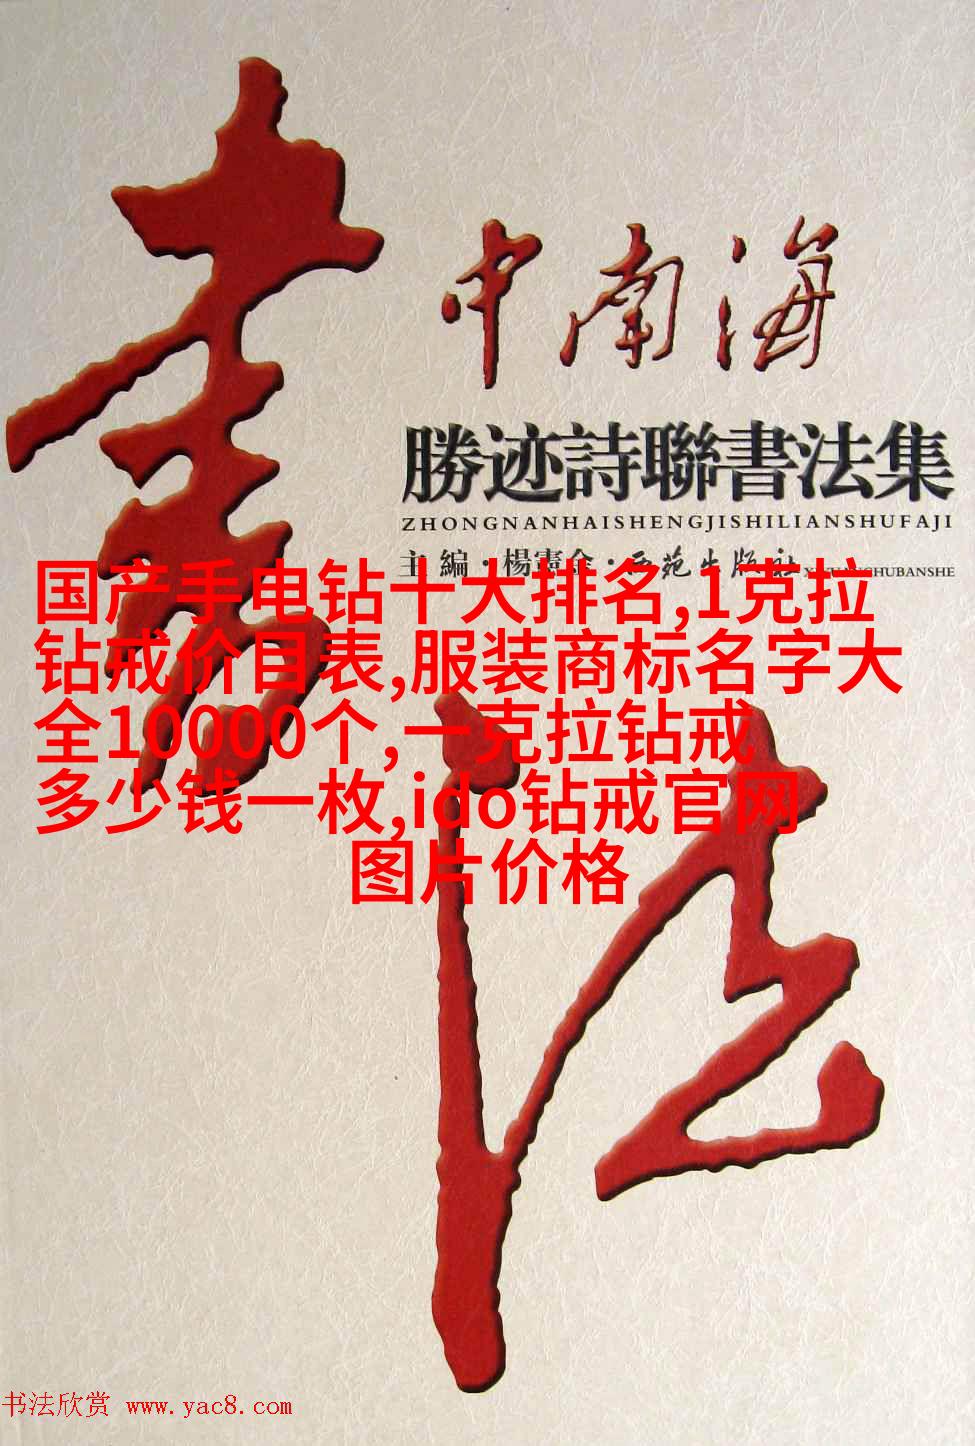 書法
中南海
勝迹詩聯書法集
ZHONGNANHAISHENGJISHILIANSHUFAJI
主編·楊憲金·西苑出版社
国产手电钻十大排名,1克拉
钻戒价目表,服装商标名字大
全10000个,一克拉钻戒
多少钱一枚,ido钻戒官网
图片价格
书法欣赏 www.yac8.com